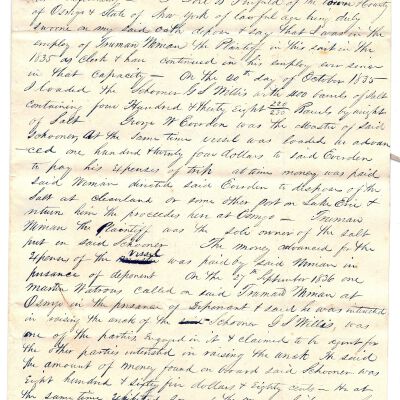 of the Town & County
of Oswego & State of New York of lawful age being duly
sworn on my said oath depose & say that I was in the
employ of Truman Wyman the Plaintiff in this suit in the
1835 as Clerk & have continued in his employ ever since
in that Capacity — On the 20th day of October 1835
I loaded the Schooner G S Willis with 400 barrels of Salt
containing four Hundred & thirty Eight Barrels by weight
of Salt George W Cowden was the Master of said
Schooner, At the same time vessel was loaded he advan
ced one hundred & twenty four dollars to said Cowden
to pay his expenses of trip at time money was paid
said Wyman directed said Cowden to dispose of the
Salt at Cleaveland or some other port on Lake Erie &
return him the proceedes here at Oswego — Truman
Wyman the Plaintiff was the sole owner of the salt
put in said Schooner The money advanced for the
Expenses of the vessel was paid by said Wyman in
presance of deponent On the 27th September 1836 one
Martin Watrous called on said Truman Wyman at
Oswego in the presance of Deponent & said he was intrusted
in raising the wreck of the Schooner G S Willis, was
one of the parties Engaged in it & claimed to be agent for
the other parties intrusted in raising the wreck He said
the amount of money found on board said Schooner was
Eight hundred & sixty five dollars & Eighty cents — He at
the same time